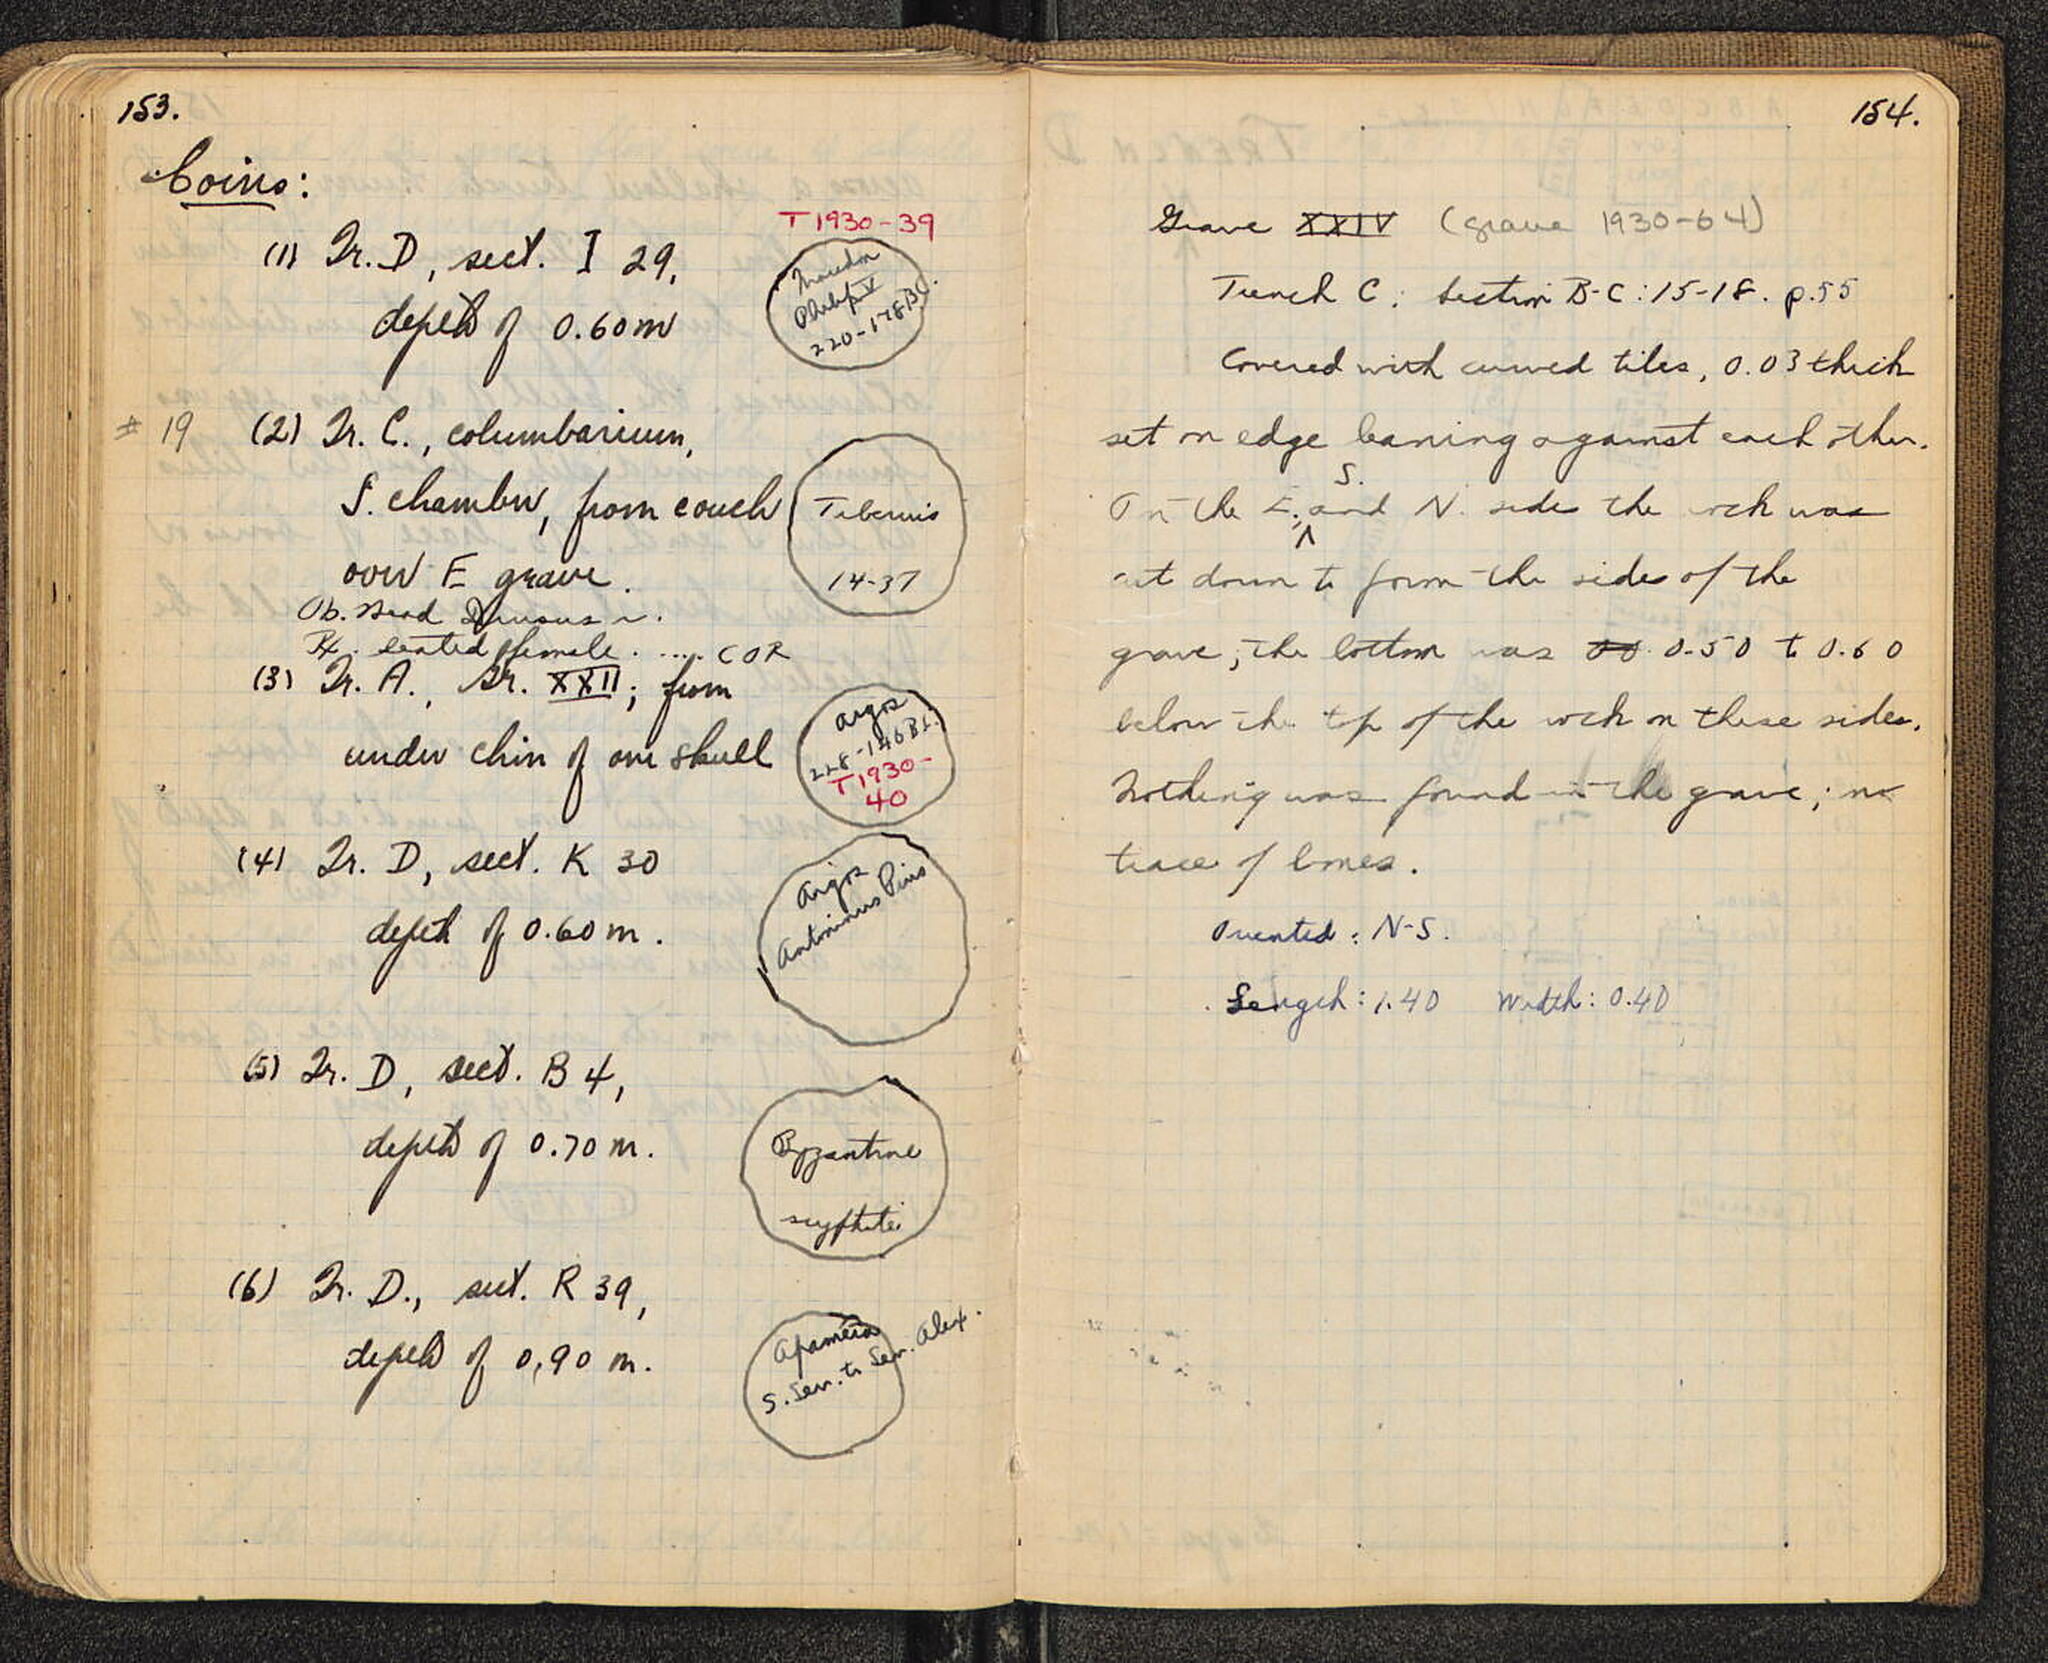 153.
Coins:
(1) Tr. D, sect. I 29,
depth of 0.60 m
T 1930-39
Macedon
Philip V
220-178 B.C.
# 19
(2) Tr. C., columbarium,
S. chamber, from couch
over E grave.
Ob. Head Drusus
Rx. seated female. .... COR
Tiberius
14-37
(3) Tr. A., Gr. XXII; from
under chin of one skull
Argos
228-146 B.C.
T 1930-
40
(4) Tr. D, sect. K 30
depth of 0.60 m.
Argos
Antoninus Pius
(5) Tr. D, sect. B 4,
depth of 0.70 m.
Byzantine
scyphate
(6) Tr. D., sect. R 39,
depth of 0.90 m.
Apameia
S. Sev. to Sev. Alex.
154.
Grave XXIV (grave 1930-64)
Trench C: Section B-C: 15-18. p. 55
Covered with curved tiles, 0.03 thick
set on edge leaning against each other.
On the E., S. and N. sides the rock was
cut down to form the sides of the
grave; the bottom was 0.50 to 0.60
below the top of the rock on these sides.
Nothing was found in the grave; no
trace of bones.
Oriented: N-S.
Length: 1.40 Width: 0.40